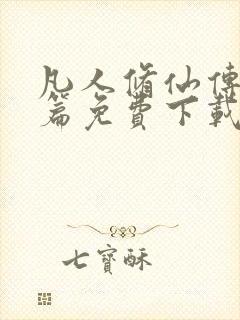 凡人脩仙傳
篇免費下載
七寶酥